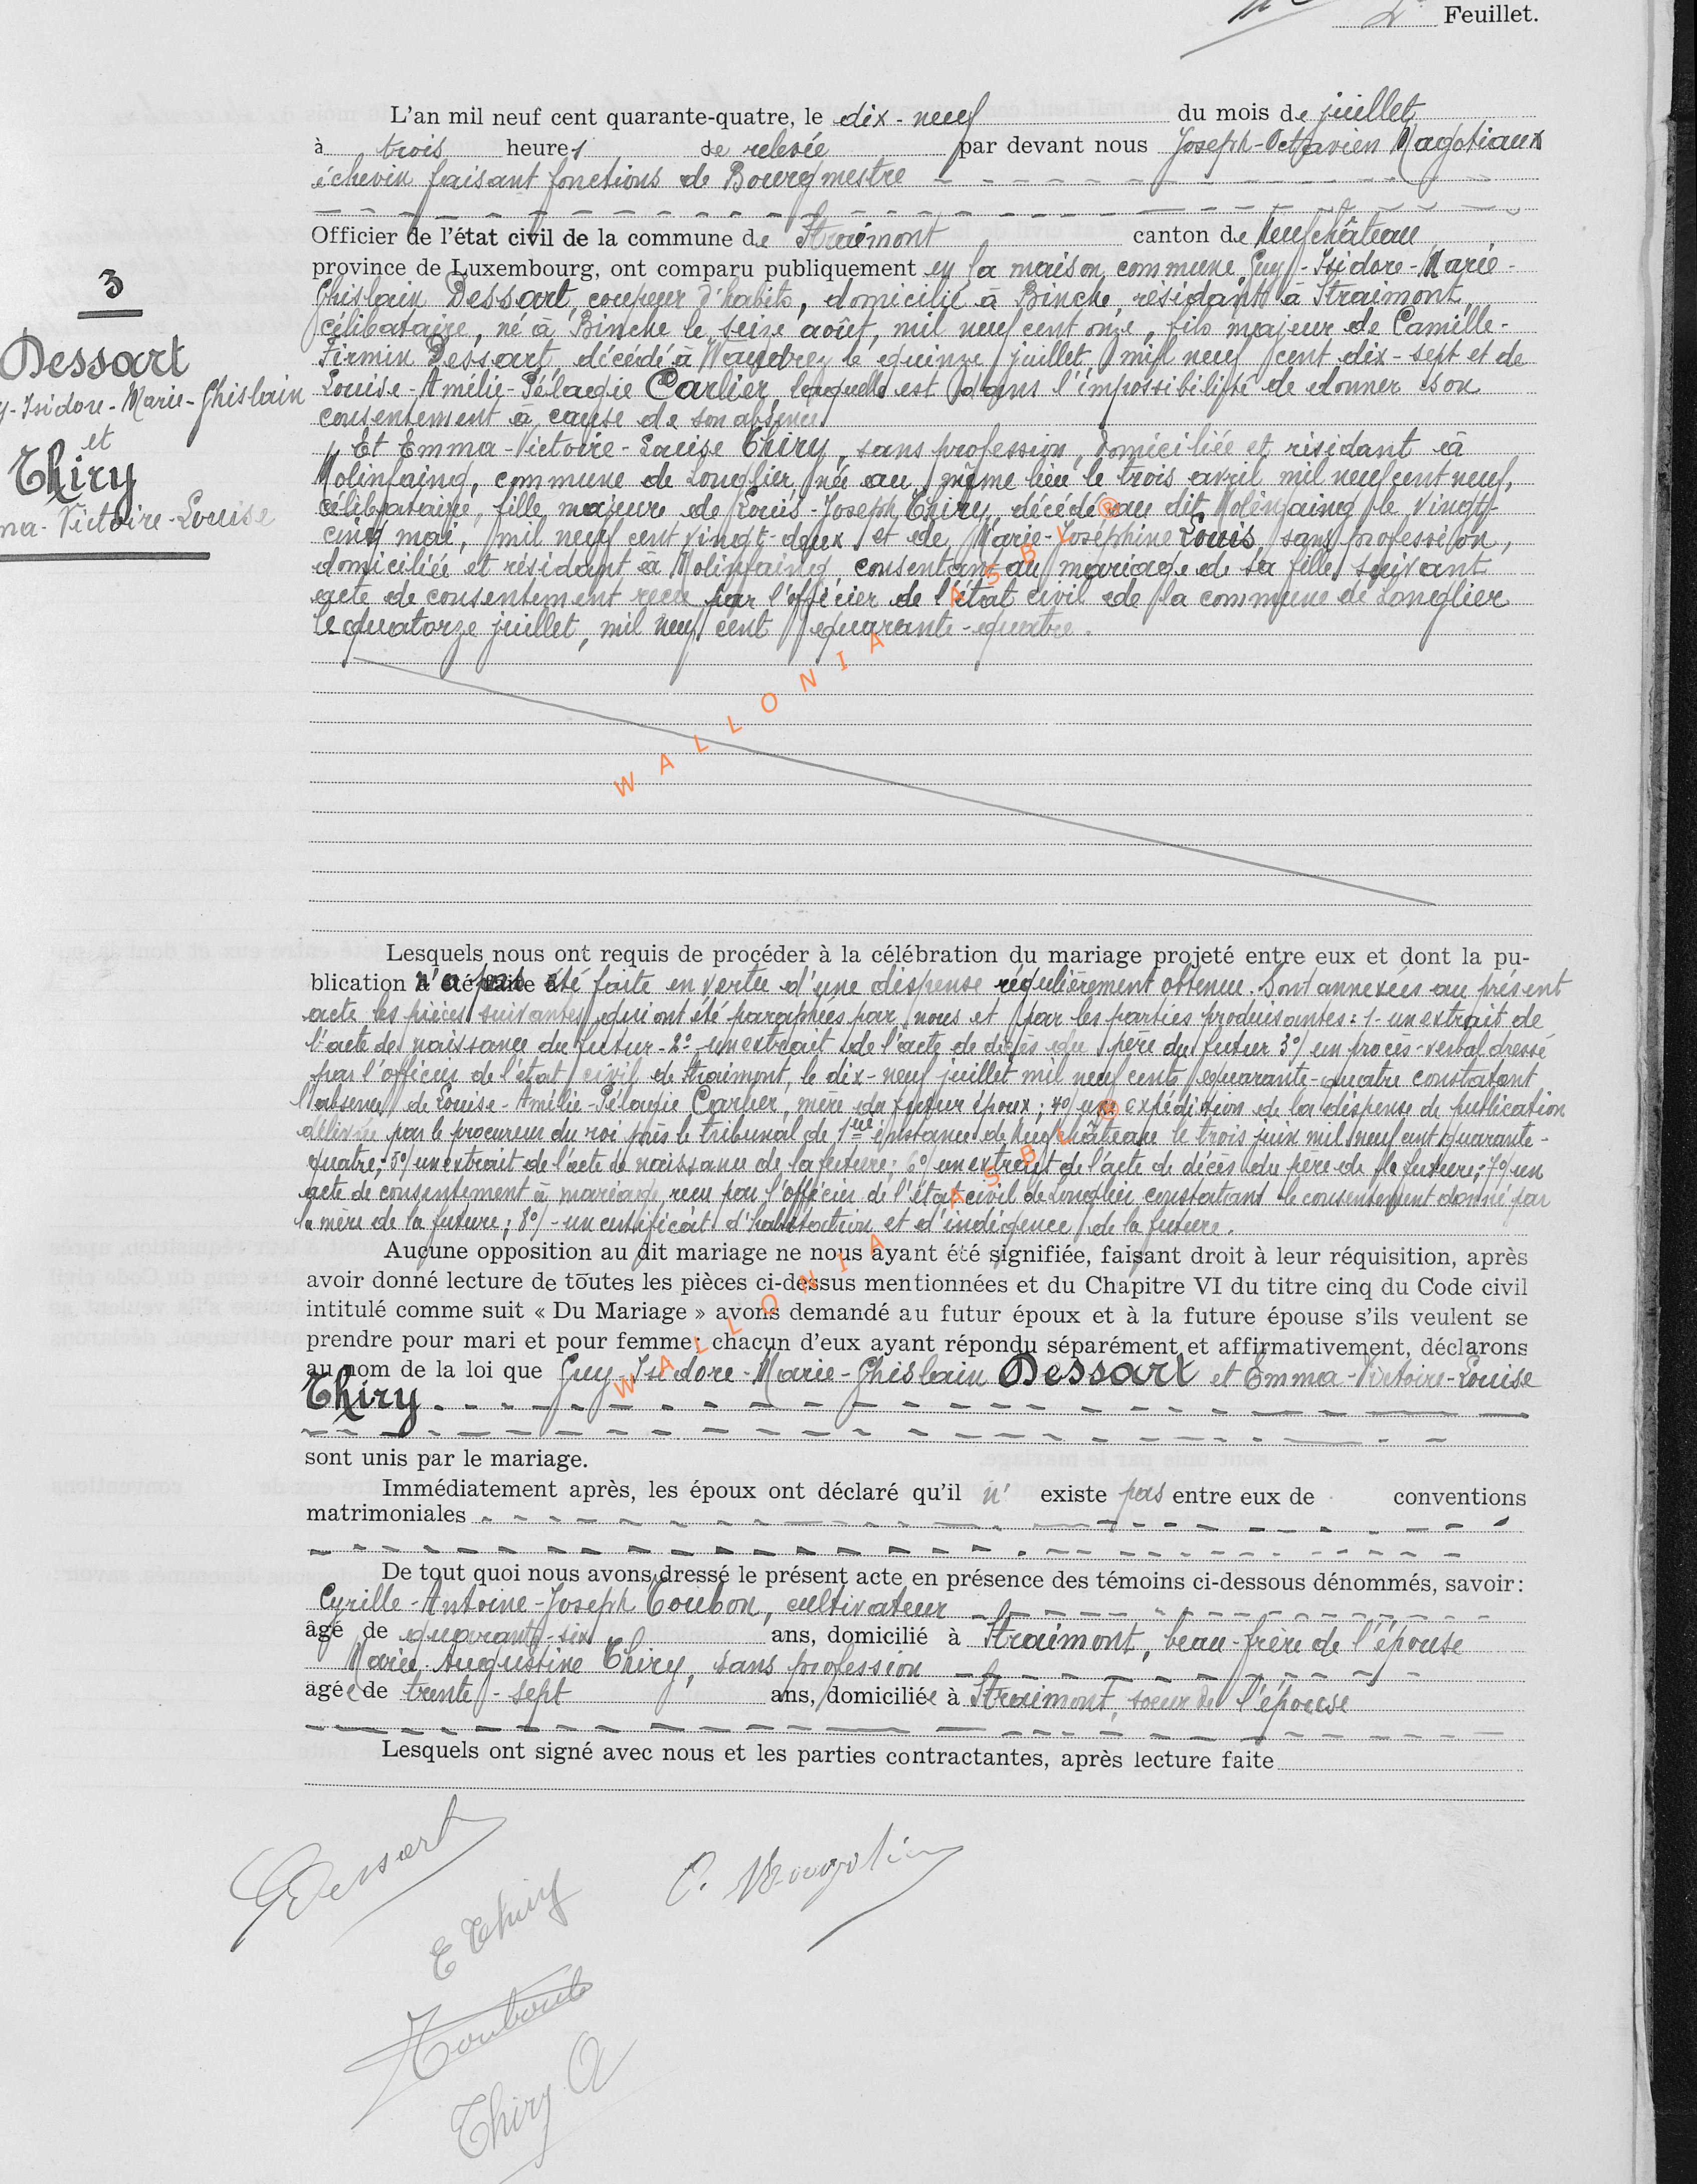 2e Feuillet.
L'an mil neuf cent quarante-quatre, le dix-neuf du mois de juillet
à trois heures de relevée par devant nous Joseph-Octavien Magotiaux
échevin faisant fonctions de Bourgmestre
Officier de l'état civil de la commune de Straimont canton de Neufchâteau
province de Luxembourg, ont comparu publiquement en la maison commune Guy-Isidore-Marie-
Ghislain Dessart, coupeur d'habits, domicilié à Binche, résidant à Straimont,
célibataire, né à Binche le seize août, mil neuf cent onze, fils majeur de Camille-
Firmin Dessart, décédé à Waudrez le quinze juillet mil neuf cent dix-sept et de
Louise-Amélie-Pélagie Carlier laquelle est dans l'impossibilité de donner son
consentement à cause de son absence
Et Emma-Victoire-Louise Thiry, sans profession, domiciliée et résidant à
Molinfaing, commune de Longlier née au même lieu le trois avril mil neuf cent neuf,
célibataire, fille majeure de Louis-Joseph Thiry, décédé au dit Molinfaing le vingt-
cinq mai, mil neuf cent vingt-deux et de Marie-Joséphine Louis, sans profession,
domiciliée et résidant à Molinfaing consentant au mariage de sa fille suivant
acte de consentement reçu par l'officier de l'état civil de la commune de Longlier
le quatorze juillet, mil neuf cent quarante-quatre.
3
Dessart
y-Isidore-Marie-Ghislain
et
Thiry
ma-Victoire-Louise
WALLONIA ASBL ®
Lesquels nous ont requis de procéder à la célébration du mariage projeté entre eux et dont la pu-
blication n'a pas été faite en vertu d'une dispense régulièrement obtenue. Sont annexées au présent
acte les pièces suivantes qui ont été paraphées par nous et par les parties produisantes : 1- un extrait de
l'acte de naissance du futur - 2° un extrait de l'acte de décès du père du futur 3°/ un procès-verbal dressé
par l'officier de l'état civil de Straimont, le dix-neuf juillet mil neuf cent quarante-quatre constatant
l'absence de Louise-Amélie-Pélagie Carlier, mère du futur époux ; 4°/ une expédition de la dispense de publication
délivrée par le procureur du roi près le tribunal de 1ère instance de Neufchâteau le trois juin mil neuf cent quarante-
quatre ; 5°/ un extrait de l'acte de naissance de la future ; 6°/ un extrait de l'acte de décès du père de la future ; 7°/ un
acte de consentement à mariage reçu par l'officier de l'état civil de Longlier constatant le consentement donné par
la mère de la future ; 8°/ - un certificat d'habitation et d'indigence de la future.
Aucune opposition au dit mariage ne nous ayant été signifiée, faisant droit à leur réquisition, après
avoir donné lecture de toutes les pièces ci-dessus mentionnées et du Chapitre VI du titre cinq du Code civil
intitulé comme suit « Du Mariage » avons demandé au futur époux et à la future épouse s'ils veulent se
prendre pour mari et pour femme; chacun d'eux ayant répondu séparément et affirmativement, déclarons
au nom de la loi que Guy-Isidore-Marie-Ghislain Dessart et Emma-Victoire-Louise
Thiry
WALLONIA ASBL ®
sont unis par le mariage.
Immédiatement après, les époux ont déclaré qu'il n' existe pas entre eux de conventions
matrimoniales
De tout quoi nous avons dressé le présent acte en présence des témoins ci-dessous dénommés, savoir :
Cyrille-Antoine-Joseph Toubon, cultivateur
âgé de quarante-six ans, domicilié à Straimont, beau-frère de l'épouse
Marie-Augustine Thiry, sans profession
âgée de trente-sept ans, domiciliée à Straimont, soeur de l'épouse
Lesquels ont signé avec nous et les parties contractantes, après lecture faite
GDessart
E Thiry
Thiry A